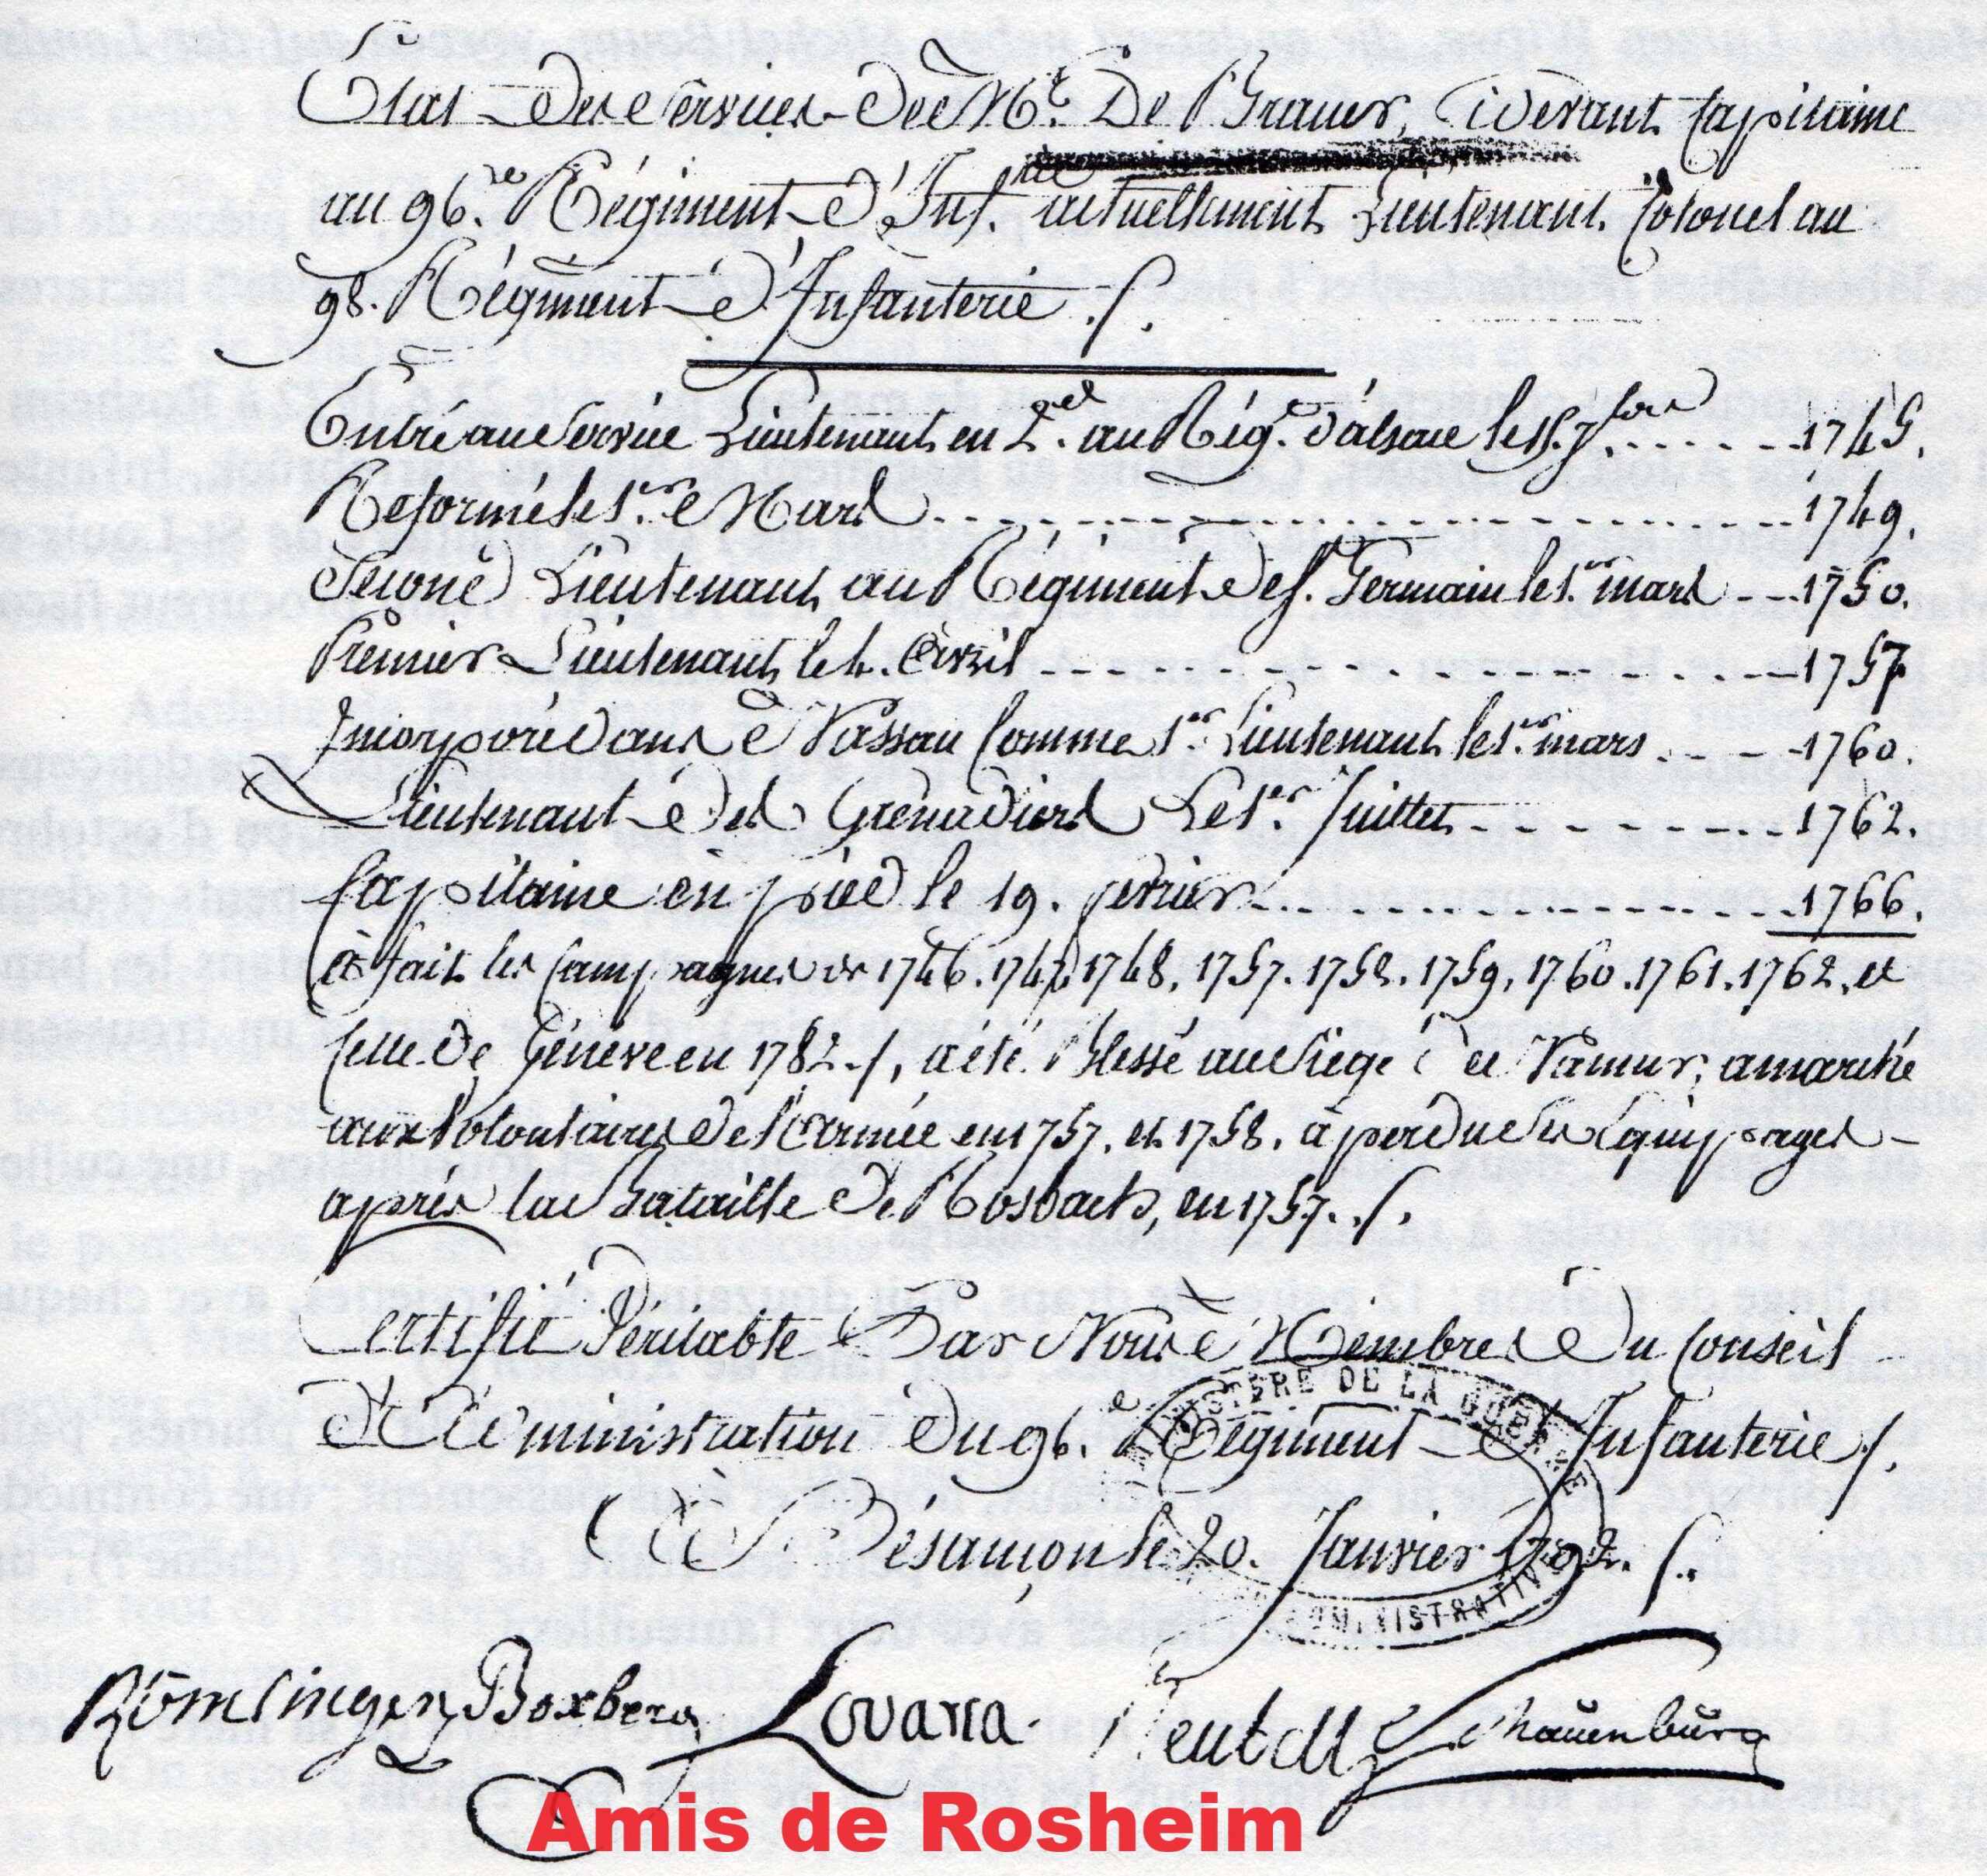 Etat des Services de Mr. De Brauer, Cidevant Capitaine
au 96.me Régiment d'Inf.rie actuellement Lieutenant Colonel au
98. Régiment d'Infanterie ./.
Entré au Service Lieutenant en 2.d au Rég.t d'alsace le 15. 7bre ..... 1745.
Reformé le 1.er Mars ..... 1749.
Second Lieutenant au Régiment de S. Germain le 1.er mars --- 1750.
Premier Lieutenant le 4. Avril ..... 1757
Incorporé dans Nassau Comme 1.er Lieutenant le 1.er mars ... 1760.
Lieutenant des Grenadiers Le 1.er Juillet ..... 1762.
Capitaine en pied le 19. fevrier ..... 1766.
a fait les Campagnes de 1746. 1747. 1748. 1757. 1758. 1759. 1760. 1761. 1762. et
Celle de Géneve en 1782 ./, a été Blessé au Siége de Namur, a marché
aux Volontaires de l'Armée en 1757. et 1758. a perdu ses Equipages -
après la Bataille de Rosbach, en 1757. ./.
Certifié Véritable Par Nous Membres Du Conseil
d'Administration Du 96.e Régiment d'Infanterie ./.
MINISTÈRE DE LA GUERRE
A Bésançon le 20. Janvier 1792. ./.
ADMINISTRATIVES
Römlingen Boxberg Lovarra Schauenburg
Amis de Rosheim